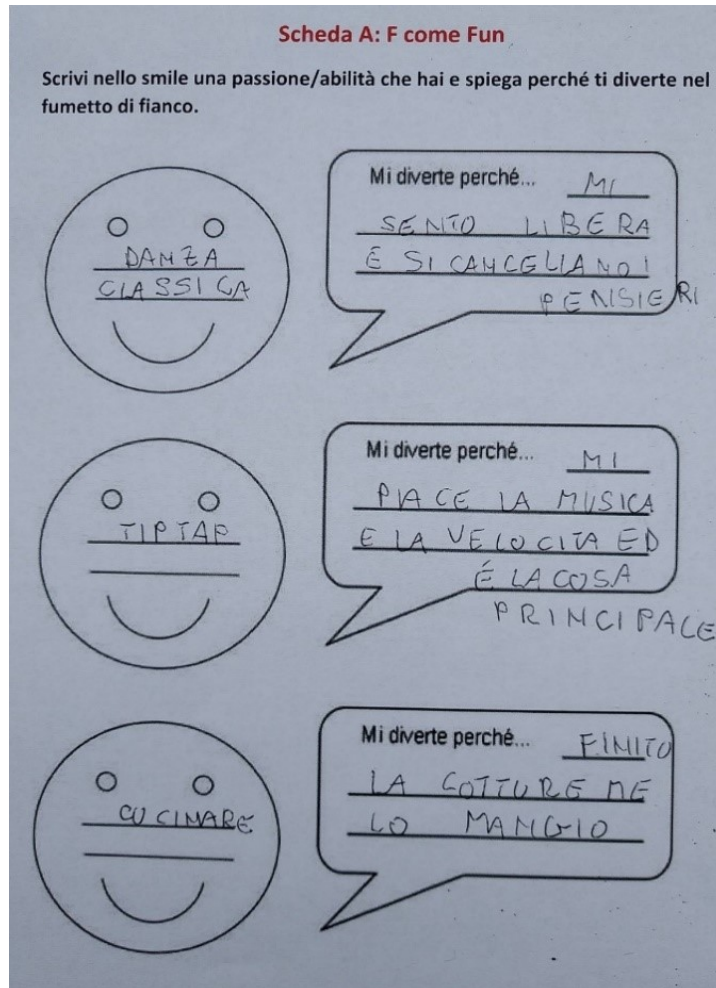 Scheda A: F come Fun
Scrivi nello smile una passione/abilità che hai e spiega perché ti diverte nel
fumetto di fianco.
DANZA
CLASSICA
Mi diverte perché... MI
SENTO LIBERA
E SI CANCELLANO I
PENSIERI
TIP TAP
Mi diverte perché... MI
PIACE LA MUSICA
E LA VELOCITA ED
É LA COSA
PRINCIPALE
CUCINARE
Mi diverte perché... FINITO
LA COTTURE ME
LO MANGIO